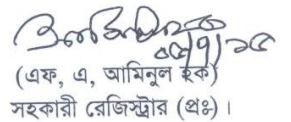 (এফ, এ, আমিনুল হক)
সহকারী রেজিস্ট্রার (প্রঃ)।